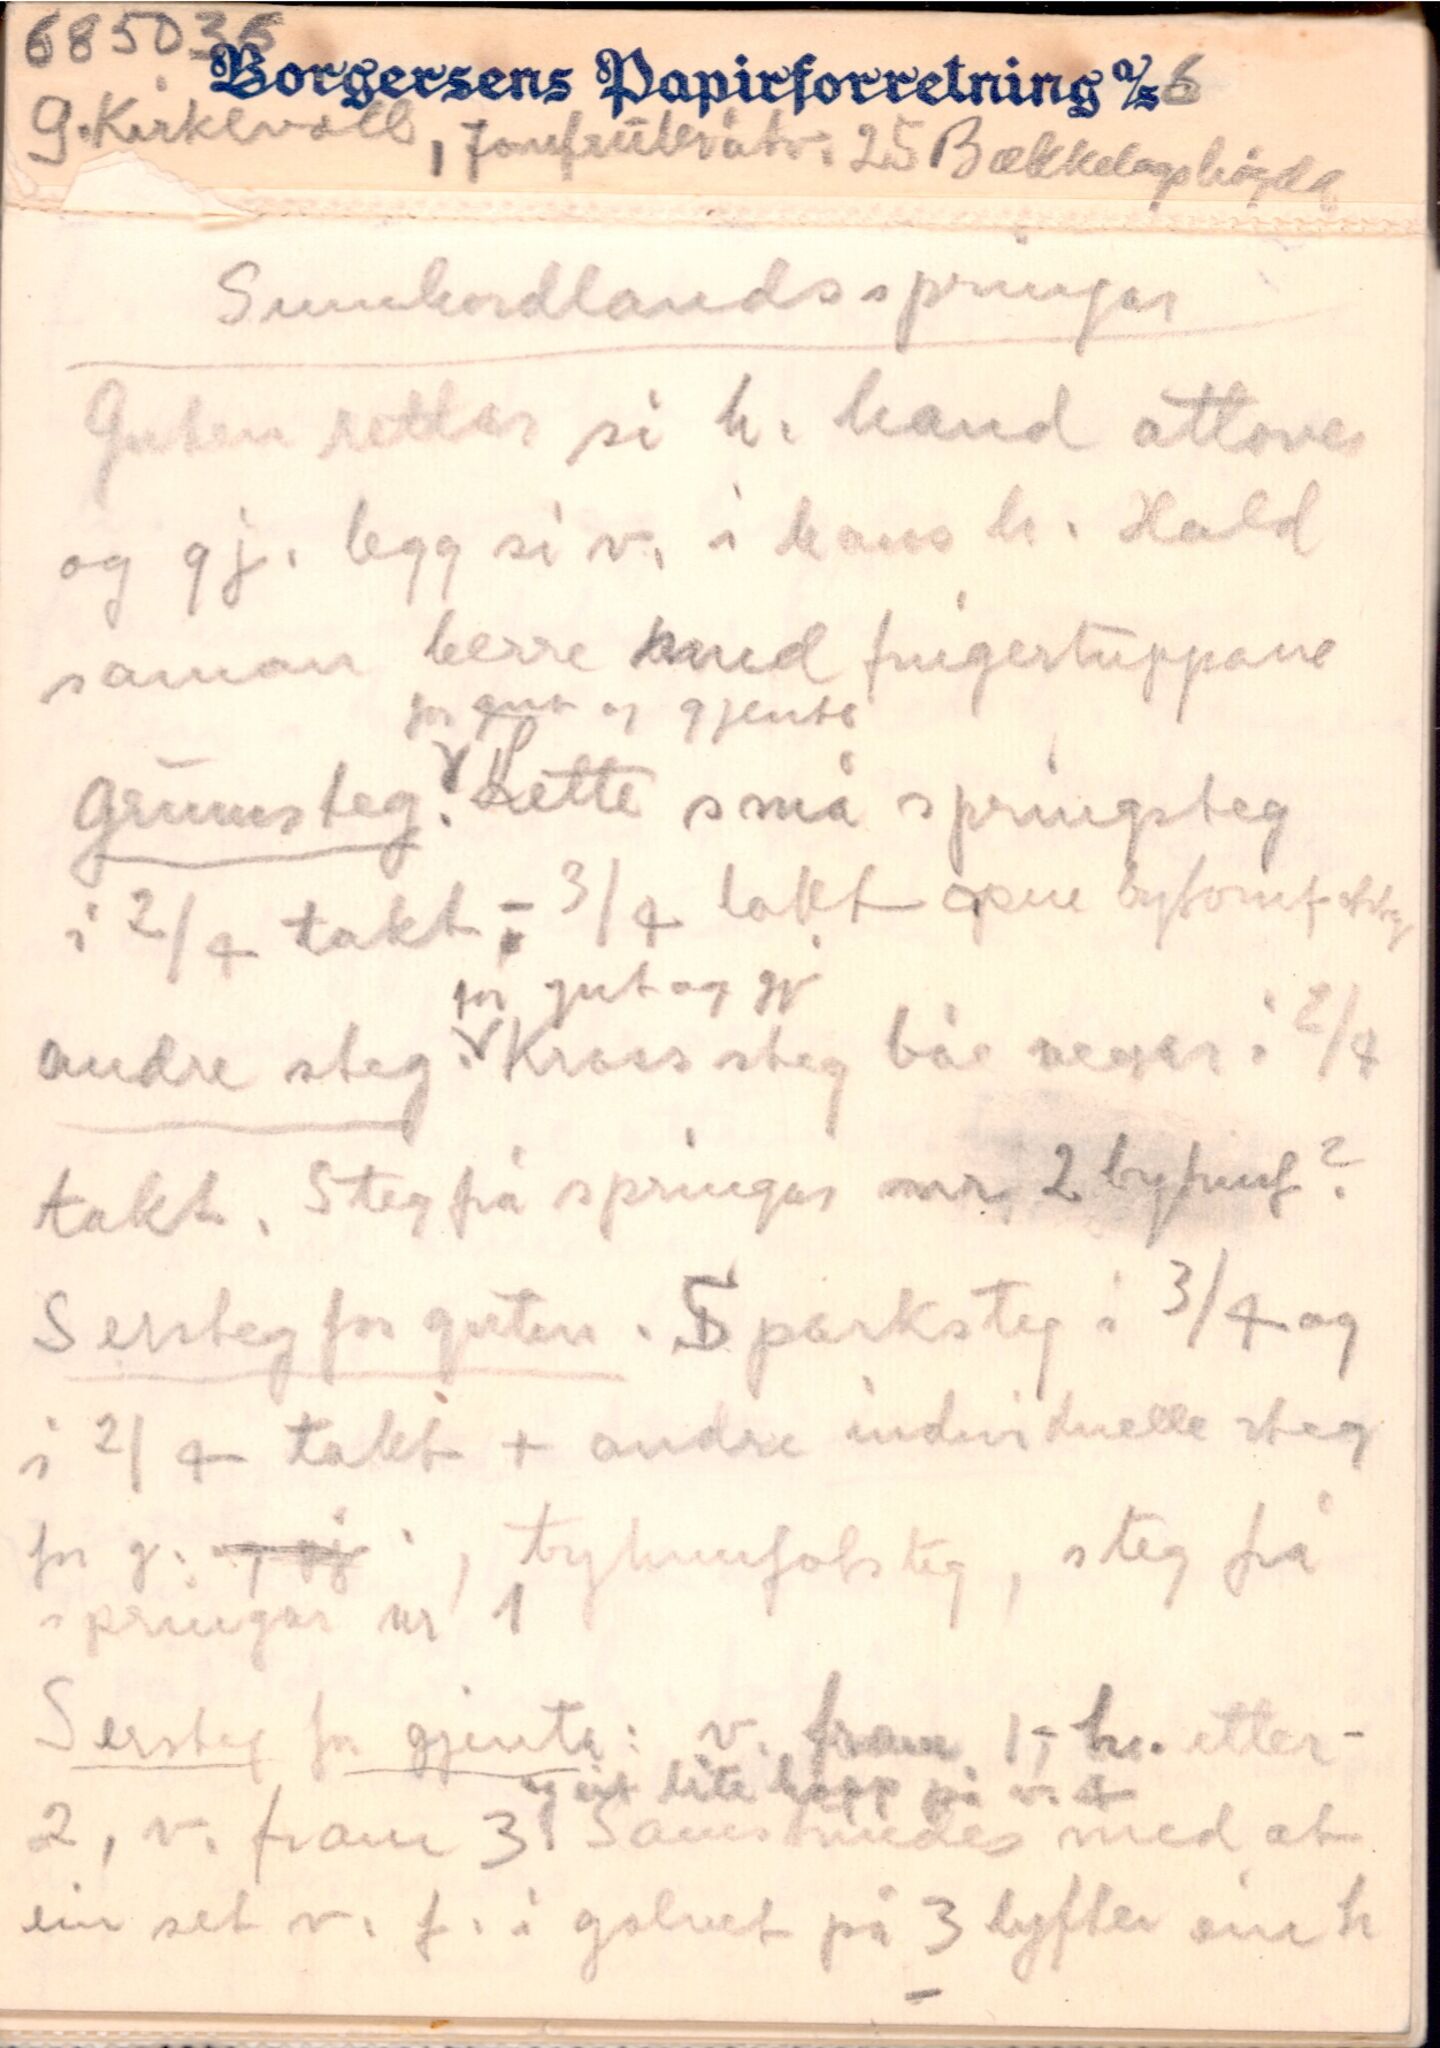 685036
Borgersens Papirforretning A/S 6
G. Kirkevoll, Jomfrubråtv. 25 Bækkelagshøgda
Sunnhordlandsspringar
Guten rettar si h. hand attover
og gj. legg si v. i hans h. Hald
saman berre med fingertuppane
for gut og gjente
Grunnsteg: Lette små springsteg
i 2/4 takt i 3/4 takt
for gut og gj
andre steg. Kross steg båe vegar i 2/4
takt. Steg frå springar nr. 2 tyhunf?
Sersteg for guten. Sparksteg i 3/4 og
i 2/4 takt + andre individuelle steg
for g. og gj, tyhunfotsteg, steg frå
springar nr 1
Sersteg for gjenta: v. fram 1, h. etter-
og eit lite hopp på v. 4
2, v. fram 3. Samstundes med at
ein set v. f. i golvet på 3 lyfter ein h